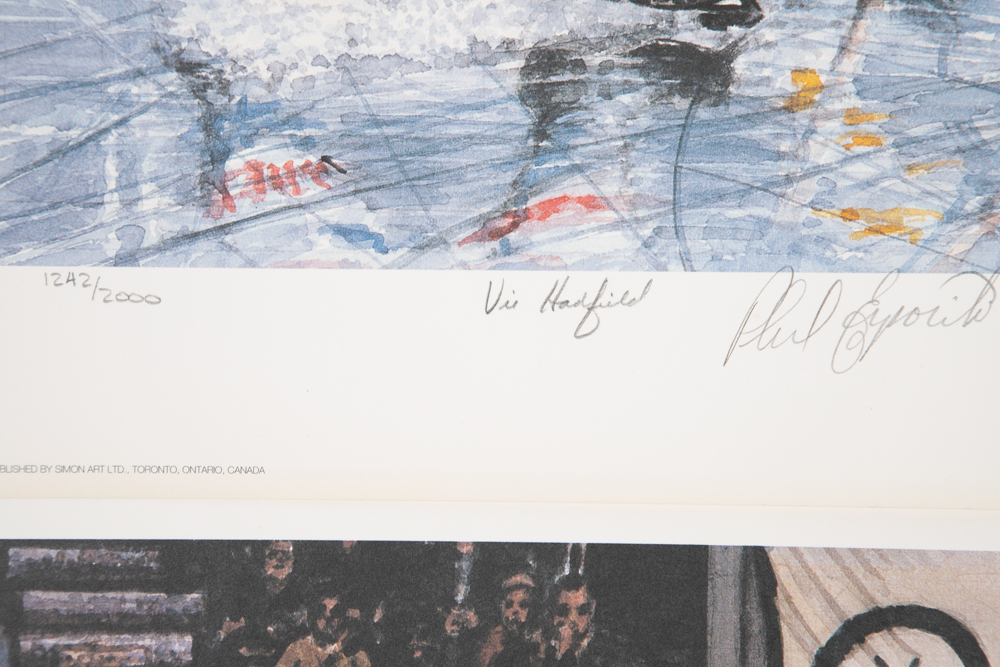 1242/2000
Vic Hadfield
Phil Esposito
BLISHED BY SIMON ART LTD., TORONTO, ONTARIO, CANADA